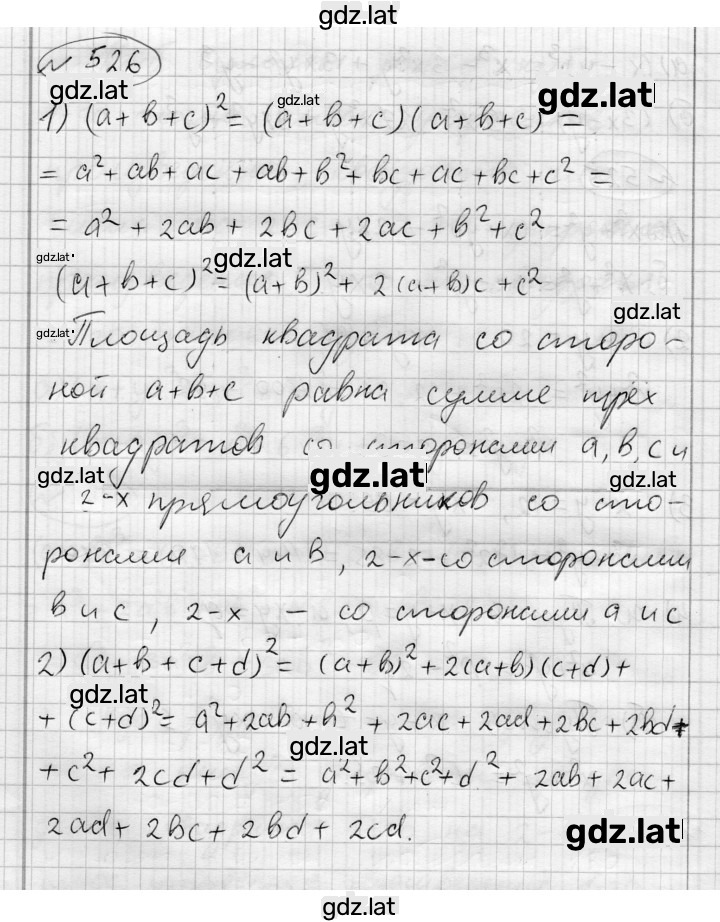 gdz.lat
№ 526
gdz.lat
gdz.lat
gdz.lat
1) (a+b+c)² = (a+b+c)(a+b+c) =
= a²+ab+ac+ab+b²+bc+ac+bc+c² =
= a²+2ab+2bc+2ac+b²+c²
gdz.lat
gdz.lat
(a+b+c)² = (a+b)²+2(a+b)c+c²
gdz.lat
gdz.lat
Площадь квадрата со сторо-
ной a+b+c равна сумме трёх
квадратов со сторонами a, b, c и
gdz.lat
gdz.lat
gdz.lat
2-х прямоугольников со сто-
ронами a и b, 2-х-со сторонами
b и c, 2-х – со сторонами a и c
2) (a+b+c+d)² = (a+b)²+2(a+b)(c+d)+
gdz.lat
+(c+d)² = a²+2ab+b²+2ac+2ad+2bc+2bd+
gdz.lat
+c²+2cd+d² = a²+b²+c²+d²+2ab+2ac+
2ad+2bc+2bd+2cd.
gdz.lat
gdz.lat